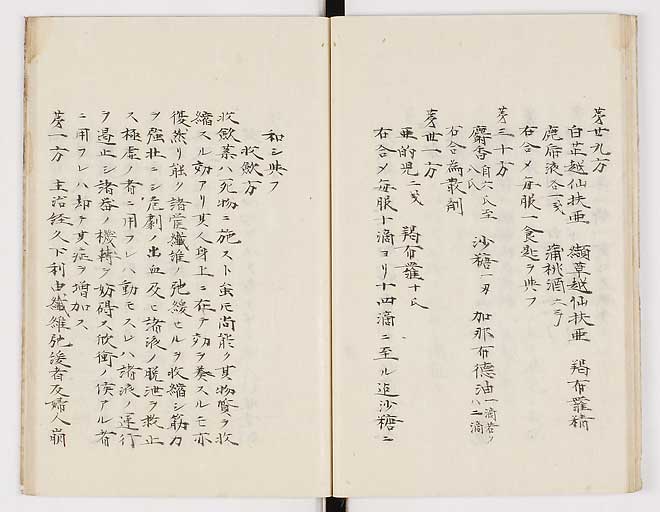 㐧廿九方
白芷越仙扶亜 纈草越仙扶亜 羯布羅精
鹿角液各一戔 蒲桃酒六ヲ
右合〆毎服一食匙ヲ与フ
㐧三十方
麝香自六氏至八氏 沙糖一刃 加那布徳油一滴若クハ二滴
右合為散剤
㐧卅一方
亜的児二戔 羯布羅十氏
右合〆毎服十滴ヨリ十四滴ニ至ル迄沙糖ニ
和シ与フ
收歛方
收歛薬ハ死物ニ施スト虽𪜈尚能ク其物質ヲ收
縮スル効アリ其人身上ニ在テ効ヲ奏スルモ亦
復然リ能ク諸管纖維ノ弛緩セルヲ收縮シ筋力
ヲ強壮ニシ危劇ノ出血及ヒ諸液ノ脱泄ヲ救止
ス極虚ノ者ニ用フレハ動モスレハ諸液ノ運行
ヲ遏止シ諸器ノ機轉ヲ妨碍ス欣衝ノ候アル者
ニ用フレハ却テ其症ヲ増加ス
㐧一方 主治経久下利由纖維弛緩者及婦人崩